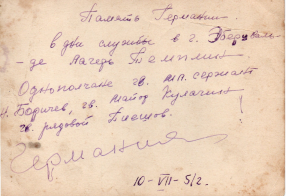 Память Германии
в дни службы в г.
де Лагерь Темплин
Однополчане гв. мл. сержант
Боричев, гв. майор Кулагин
гв. рядовой !
Германия
10-VII-52.